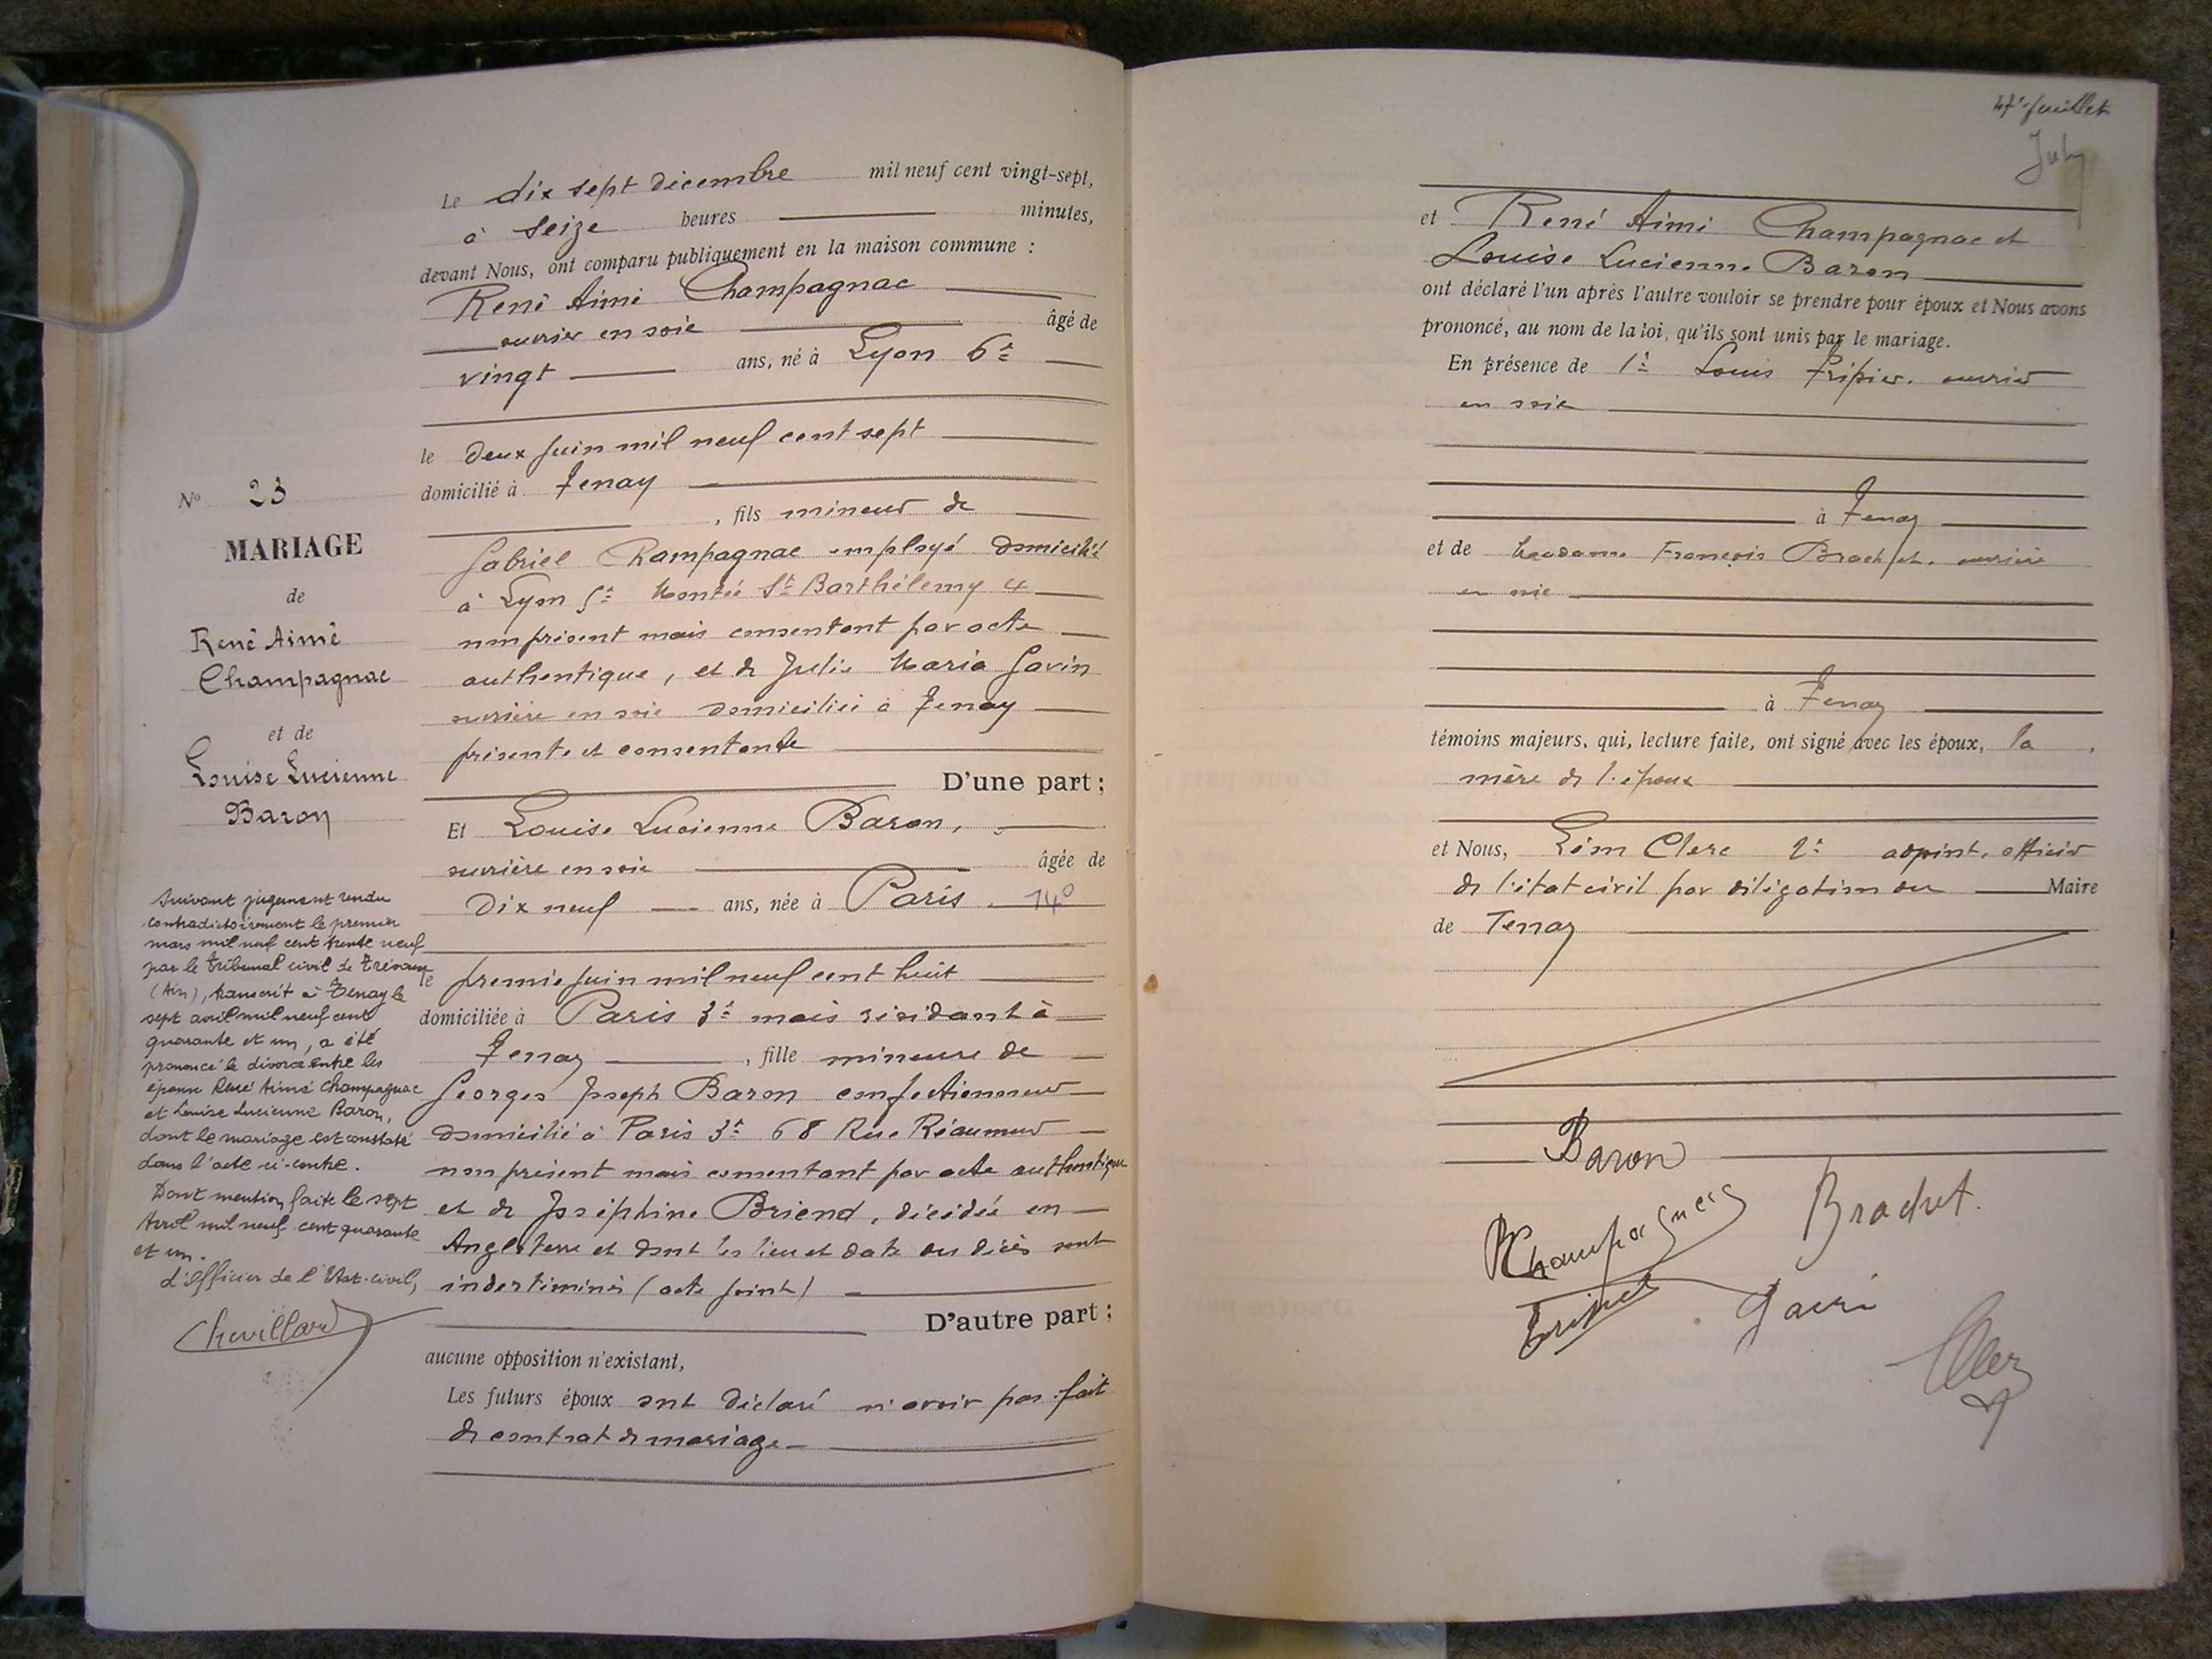 Le dix sept décembre mil neuf cent vingt-sept,
à seize heures minutes,
devant Nous, ont comparu publiquement en la maison commune :
René Aimé Champagnac
ouvrier en soie âgé de
vingt ans, né à Lyon 6e
le deux juin mil neuf cent sept
domicilié à Tenay
, fils mineur de
Gabriel Champagnac employé domicilié
à Lyon 5e Montée St Barthélemy 4
non présent mais consentant par acte
authentique, et de Julie Maria Gavin
ouvrière en soie domiciliée à Tenay
présente et consentante
D'une part ;
Et Louise Lucienne Baron,
ouvrière en soie âgée de
Dix neuf ans, née à Paris 14e
le premier juin mil neuf cent huit
domiciliée à Paris 3e mais résidant à
Tenay, fille mineure de
Georges Joseph Baron confectionneur
domicilié à Paris 3e 68 Rue Réaumur
non présent mais consentant par acte authentique
et de Joséphine Briend, décédée en
Angleterre et dont les lieu et date du décès sont
indéterminés (acte joint)
D'autre part ;
aucune opposition n'existant,
Les futurs époux ont déclaré n'avoir pas fait
de contrat de mariage
No 23
MARIAGE
de
René Aimé
Champagnac
et de
Louise Lucienne
Baron
Suivant jugement rendu
contradictoirement le premier
mars mil neuf cent trente neuf
par le tribunal civil de Trévoux
(Ain), transcrit à Tenay le
sept avril mil neuf cent
quarante et un, a été
prononcé le divorce entre les
époux René Aimé Champagnac
et Louise Lucienne Baron,
dont le mariage est constaté
dans l'acte ci-contre.
Dont mention faite le sept
Avril mil neuf cent quarante
et un.
L'officier de l'Etat-civil,
Chevillard
47e feuillet
et René Aimé Champagnac et
Louise Lucienne Baron
ont déclaré l'un après l'autre vouloir se prendre pour époux et Nous avons
prononcé, au nom de la loi, qu'ils sont unis par le mariage.
En présence de 1e Louis Tripier, ouvrier
en soie
à Tenay
et de Madame François Brachet, ouvrière
en soie
à Tenay
témoins majeurs, qui, lecture faite, ont signé avec les époux, la
mère de l'époux
et Nous, Léon Clerc 2e adjoint, officier
de l'état civil par délégation du Maire
de Tenay
Baron
Brachet.
Clerc